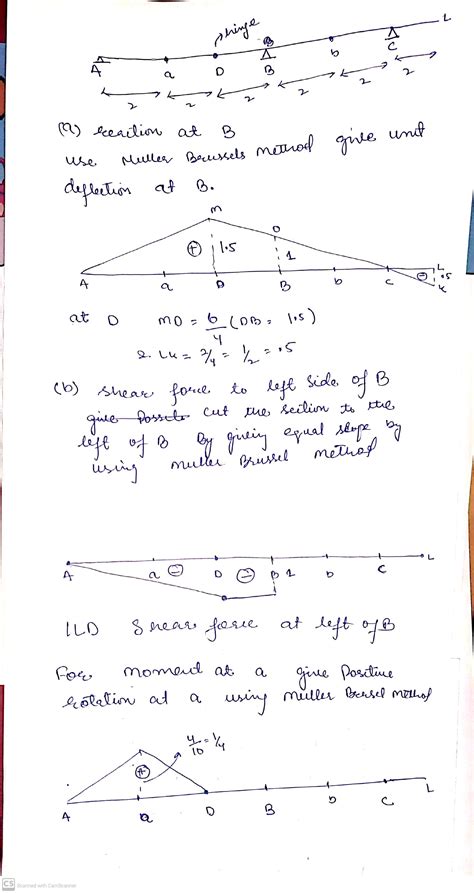 hinge
L
A a D B B b C
2 2 2 2 2 2 2
(a) reaction at B
use Muller Breussels method give unit
deflection at B.
m
+ 1.5 o 1
A a D B b c L .5 K
at D MD = 6/4 (OB = 1.5)
2. LK = 2/4 = 1/2 = .5
(b) shear force to left side of B
give Posset cut the section to the
left of B By giving equal slope by
using muller Brussel method
A a - D - B 1 b c L
ILD Shear force at left of B
For moment at a give Positive
rotation at a using muller Bersel method
4/10 = 1/4
+
A a D B b C L
CS Scanned with CamScanner